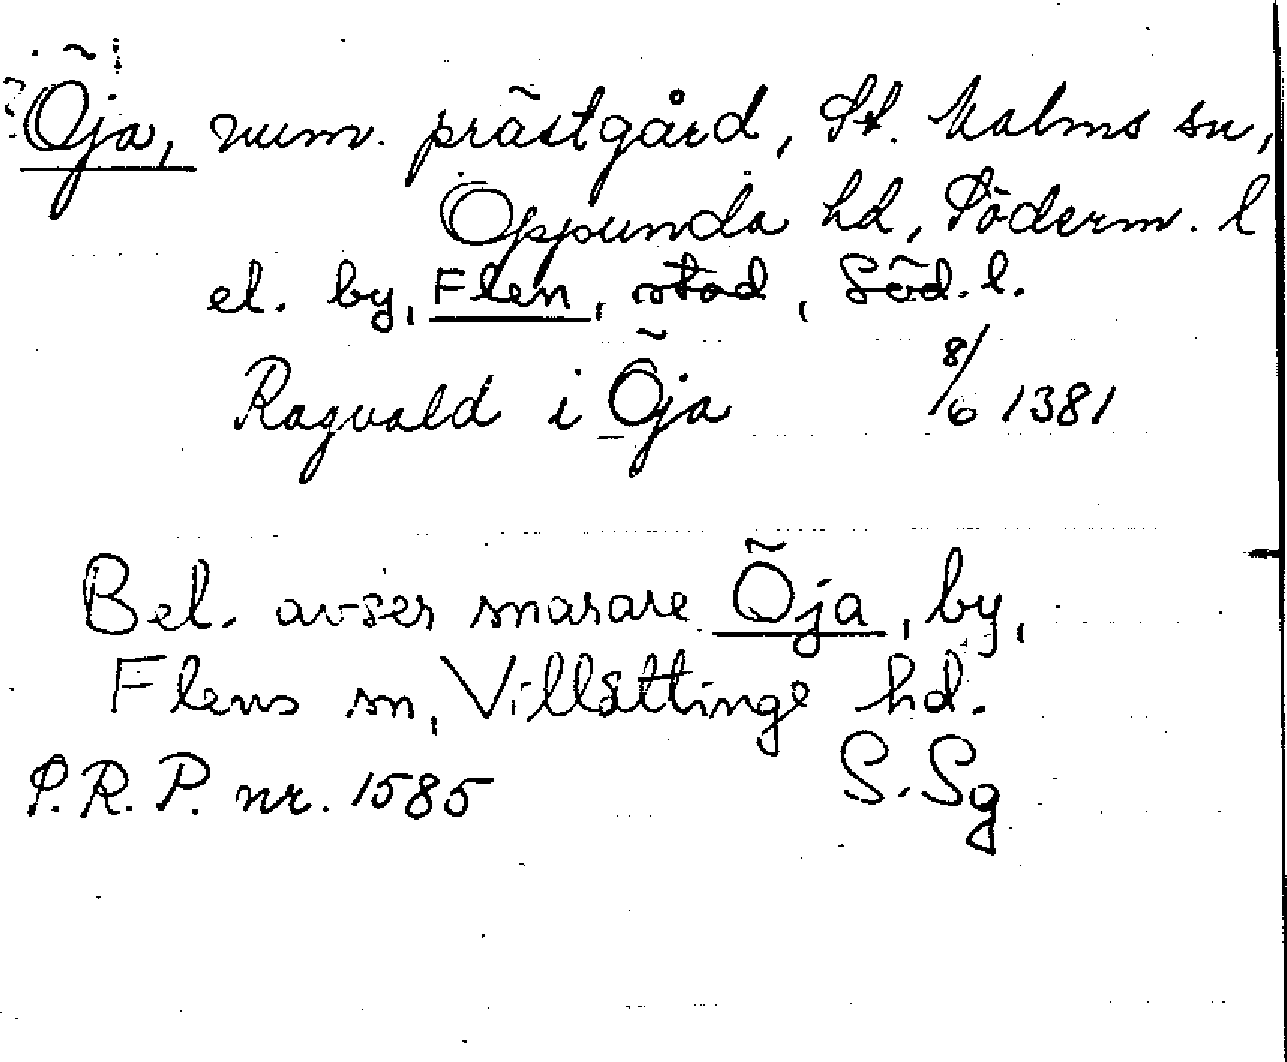 ? Öja, num. prästgård, St. Malms sn,
Oppunda hd, Söderm. l
el. by, Flen, stad, Söd. l.
Ragvald i Öja 8/6 1381
Bel. avser snarare Öja, by,
Flens sn, Villåttinge hd.
P.R.P. nr. 1585 S.Sg